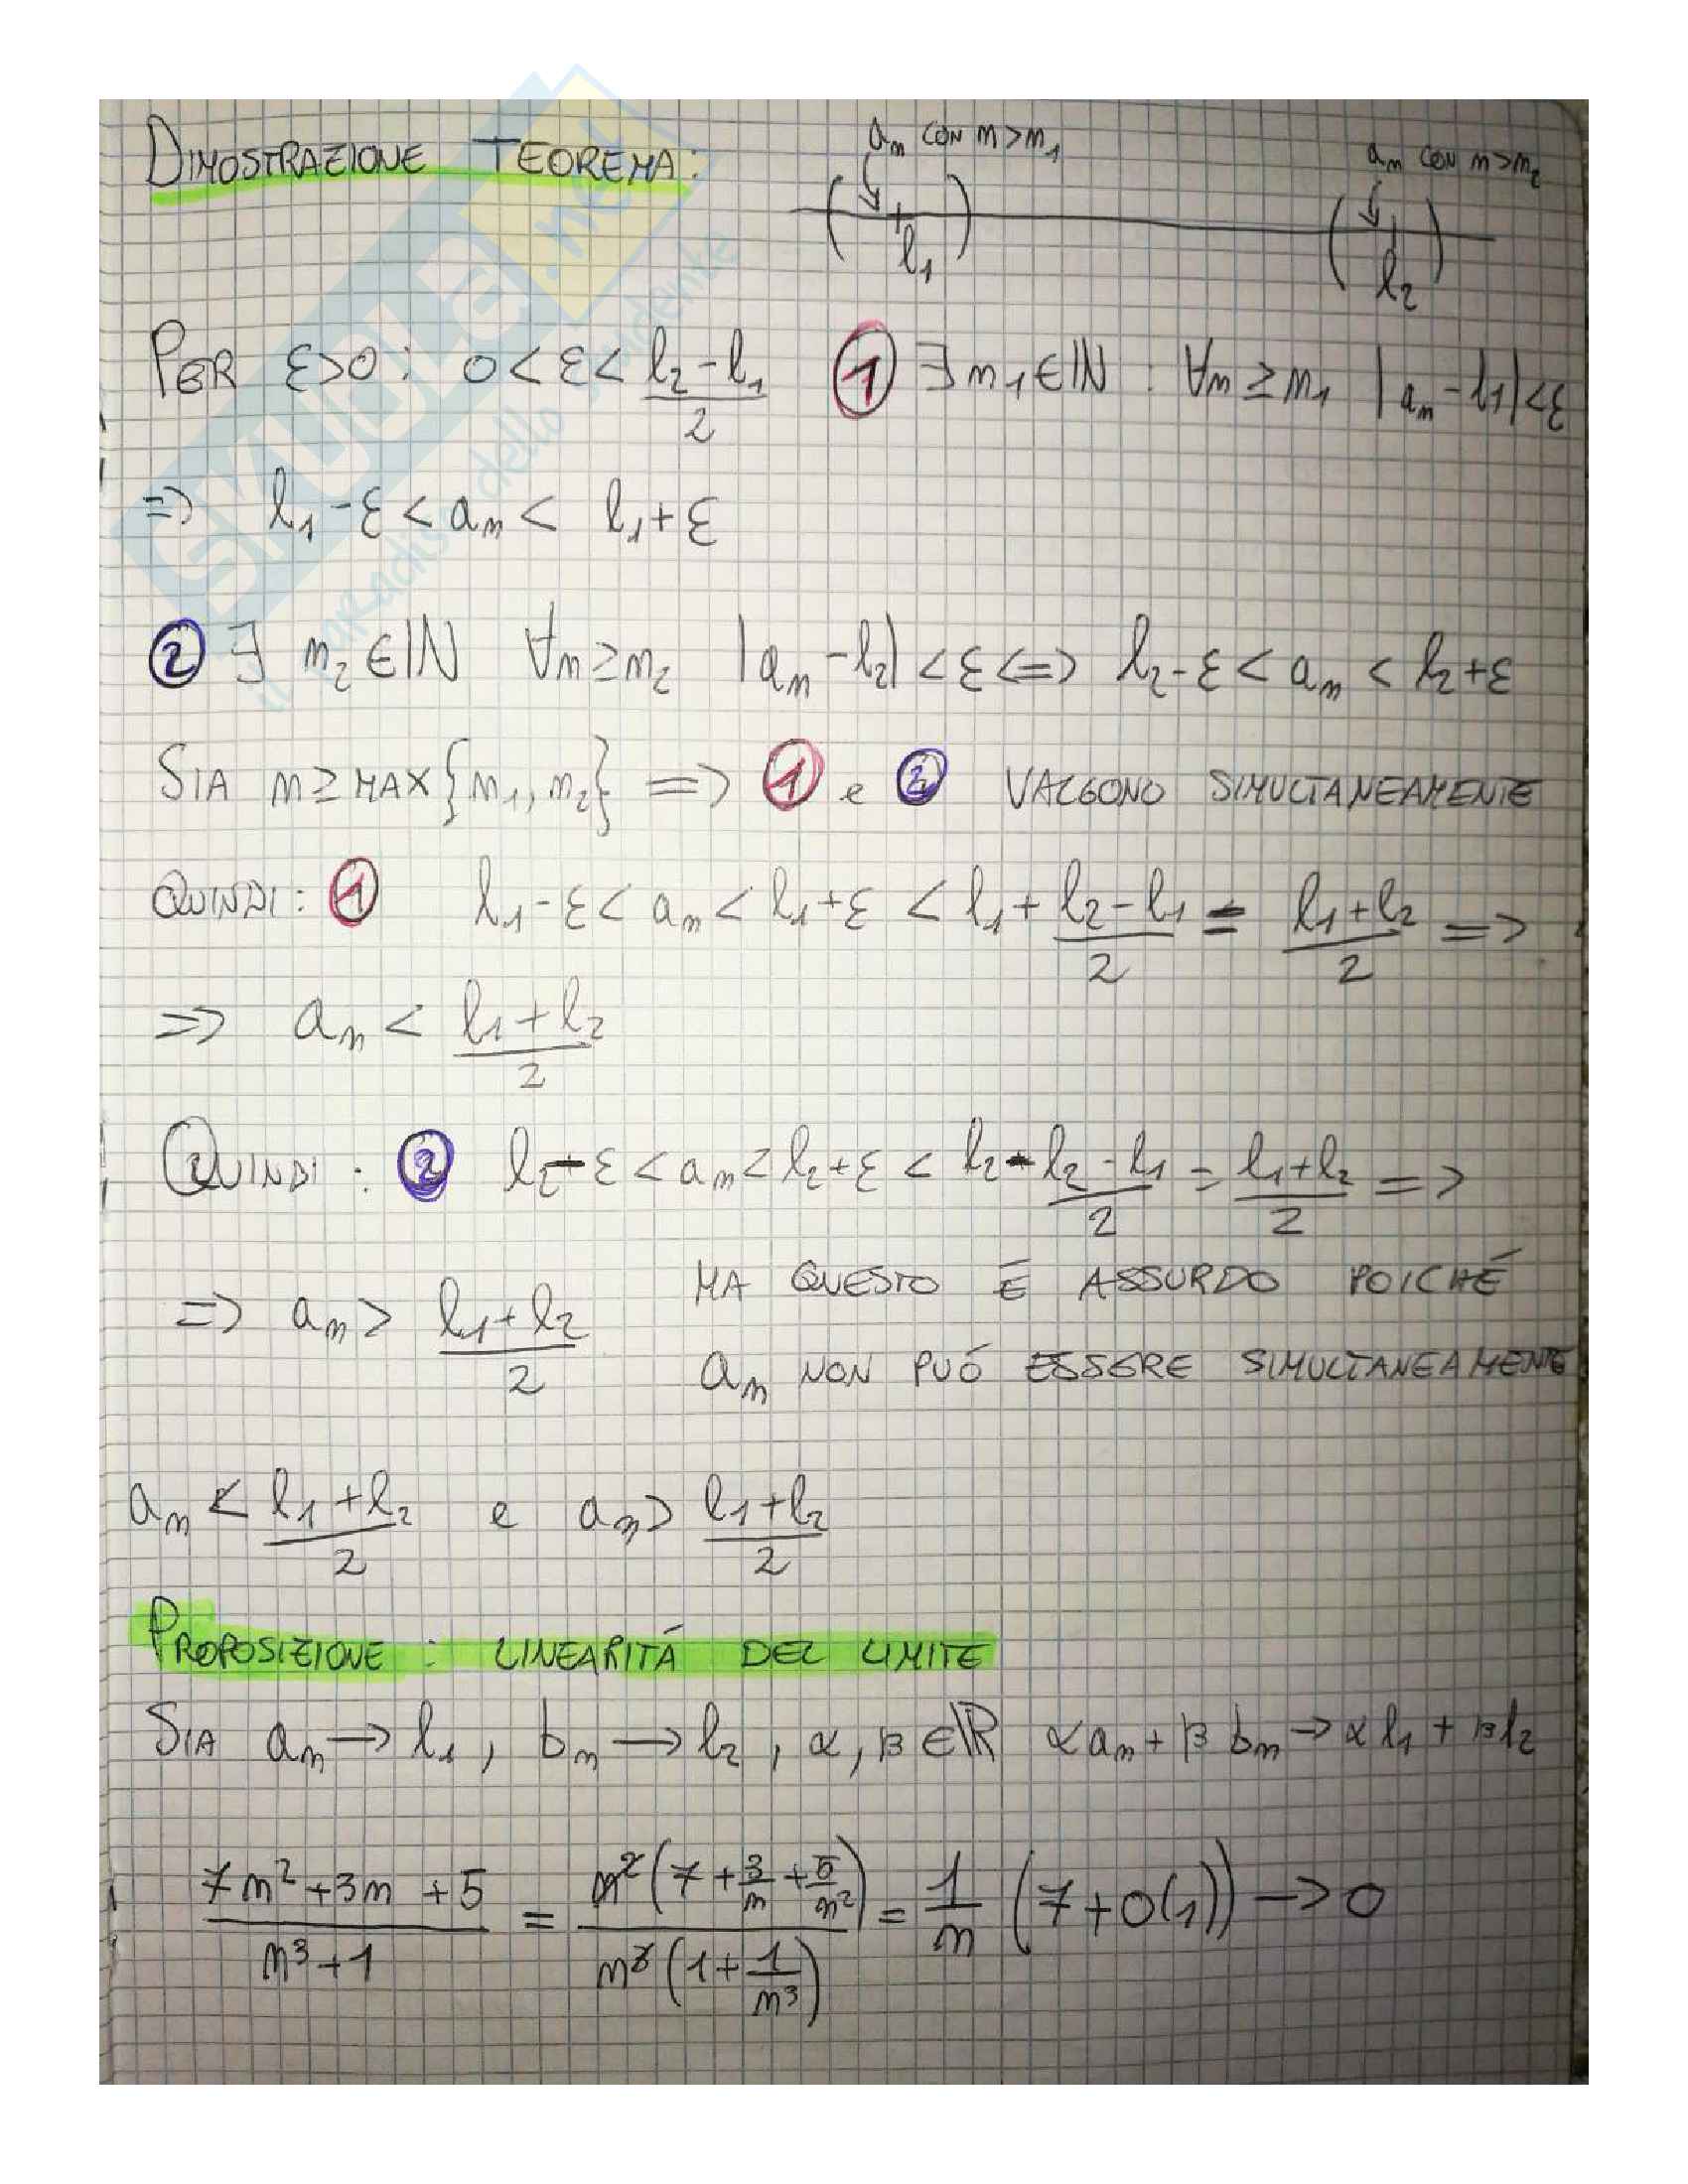 DIMOSTRAZIONE TEOREMA:
aₙ CON n>n₁
aₙ CON n>n₂
l₁
l₂
PER ε>0: 0<ε<(l₂-l₁)/2 ① ∃ n₁∈ℕ : ∀n≥n₁ |aₙ-l₁|<ε
=> l₁-ε<aₙ< l₁+ε
② ∃ n₂∈ℕ ∀n≥n₂ |aₙ-l₂|<ε<=> l₂-ε<aₙ<l₂+ε
SIA n≥MAX{n₁,n₂} => ① e ② VALGONO SIMULTANEAMENTE
QUINDI: ① l₁-ε<aₙ<l₁+ε<l₁+(l₂-l₁)/2=(l₁+l₂)/2=>
=> aₙ<(l₁+l₂)/2
QUINDI: ② l₂-ε<aₙ<l₂+ε<l₂-(l₂-l₁)/2=(l₁+l₂)/2=>
=> aₙ>(l₁+l₂)/2 MA QUESTO É ASSURDO POICHÉ
aₙ NON PUÓ ESSERE SIMULTANEAMENTE
aₙ<(l₁+l₂)/2 e aₙ>(l₁+l₂)/2
PROPOSIZIONE: LINEARITÁ DEL LIMITE
SIA aₙ→l₁, bₙ→l₂, α,β∈ℝ αaₙ+βbₙ→αl₁+βl₂
(7n²+3n+5)/(n³+1) = n²(7+3/n+5/n²)/(n³(1+1/n³)) = 1/n (7+o(1))→0
SKUOLA.net
il paradiso dello studente